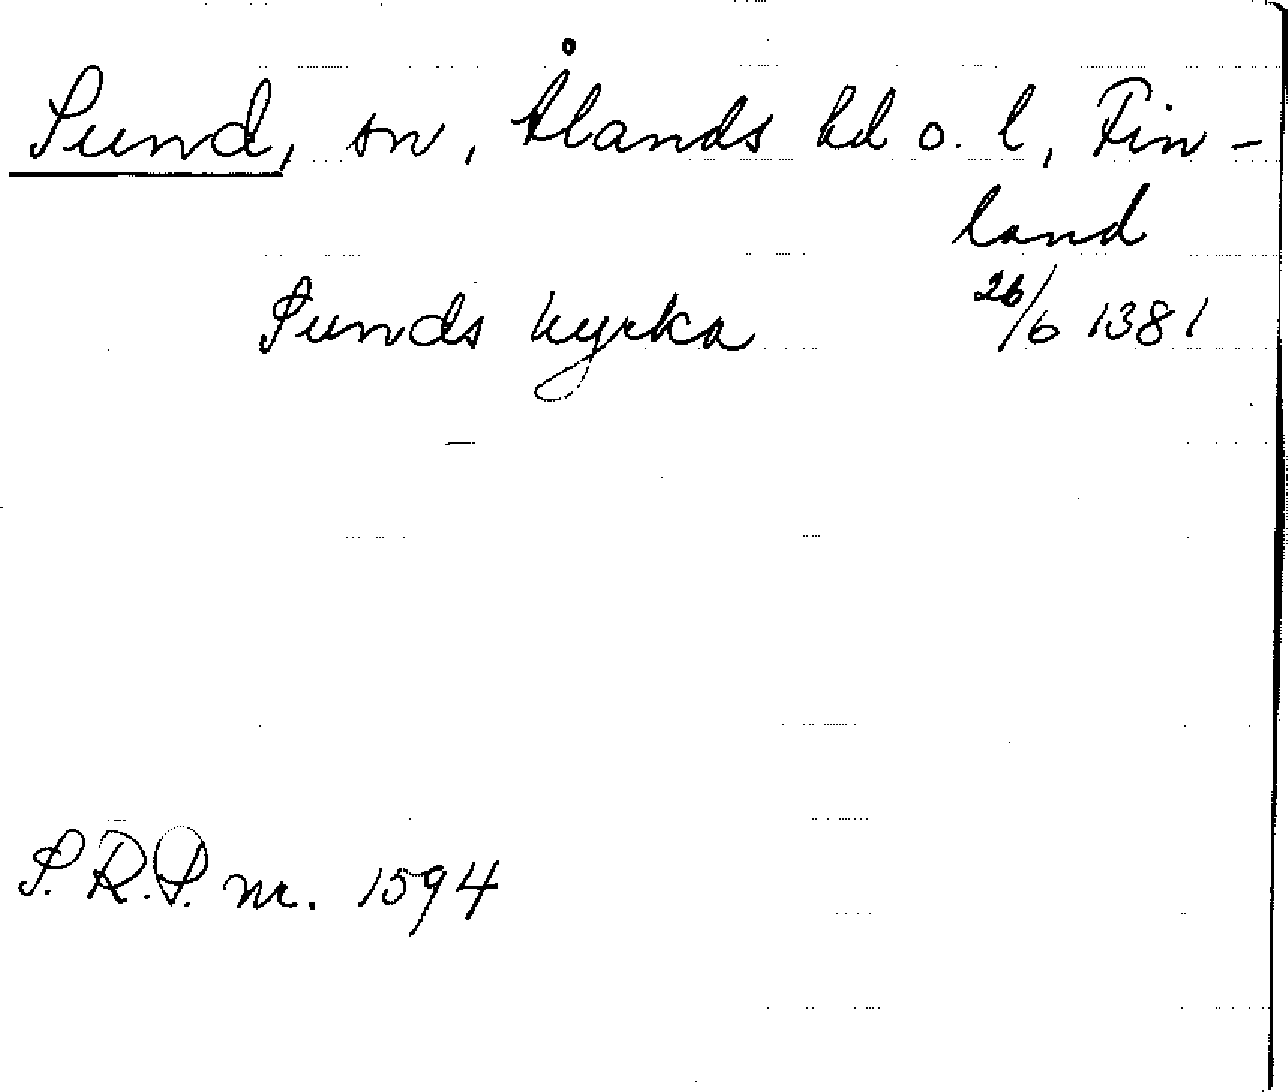 Sund, sn, Ålands hd o. l, Fin-
land
Sunds kyrka 26/6 1381
S.R.P. nr. 1594